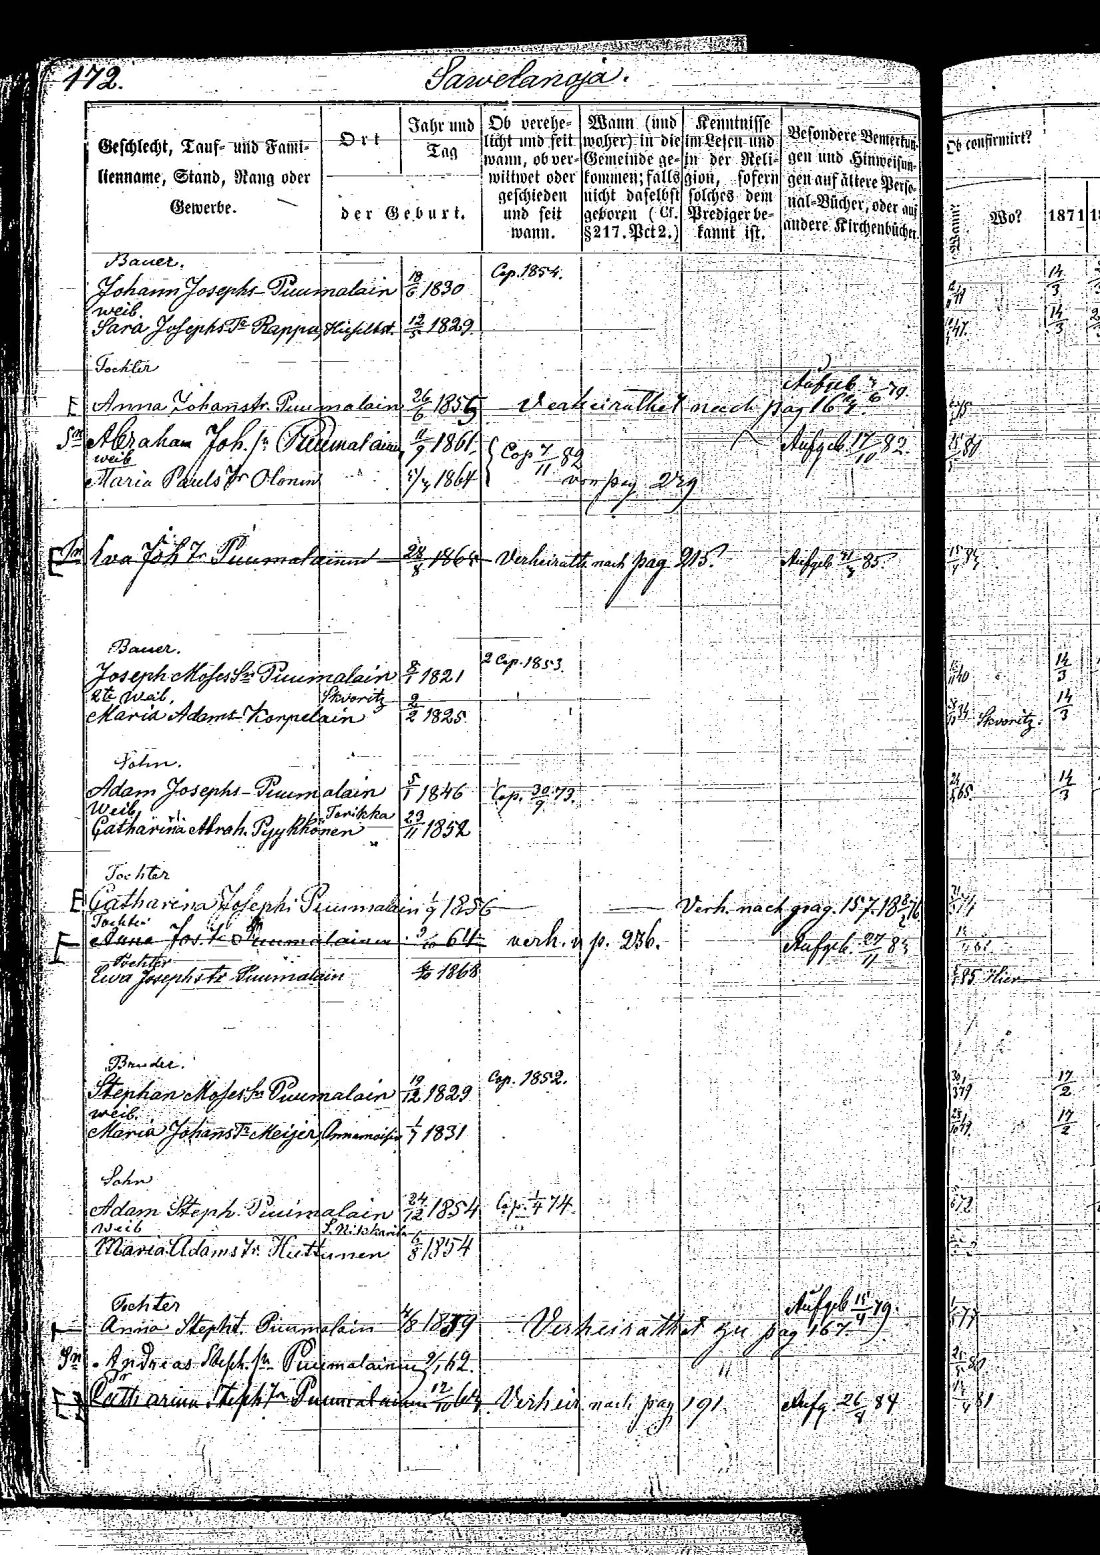 172.
Sawelanoja.
Geschlecht, Tauf- und Fami-
lienname, Stand, Rang oder
Gewerbe.
Ort
Jahr und
Tag
der Geburt.
Ob verehe-
licht und seit
wann, ob ver-
wittwet oder
geschieden
und seit
wann.
Wann (und
woher) in die
Gemeinde ge-
kommen; falls
nicht daselbst
geboren (Cf.
§ 217. Pct 2.)
Kenntnisse
im Lesen und
in der Reli-
gion, sofern
solches dem
Prediger be-
kannt ist.
Besondere Bemerkun-
gen und Hinweisun-
gen auf ältere Perso-
nal-Bücher, oder auf
andere Kirchenbücher.
Ob confirmirt?
Wann?
Wo?
1871
Bauer.
Johann Josephs Puumalain 18/6 1830 Cop. 1854. 14/3
Weib
Sara Josephs Tr Rappu, 12/5 1829 14/3
Tochter
Anna Johanstr. Puumalain 26/6 1855 Verheirathet nach pag 167 Aufgeb 79.
Sn Abraham Joh. sn Puumalain 11/9 1861. Cop 7/11 82 Aufgeb. 17/10 82.
weib
Maria Pauls Tr Olonen 1864 von pag 229
Tr Eva Joh Tr Puumalainen 28/8 1865 Verheirath. nach pag 215. Aufgeb 85.
Bauer.
Joseph Moses Sn Puumalain 8/1 1821 2 Cop. 1853. 14/3
2te Weib, Skvoritz
Maria Adams Korpelain 2/2 1825. Skvoritz. 14/3
Sohn.
Adam Josephs Puumalain 5/1 1846 Cop. 30/9 73. 14/3
Weib Terikka
Catharina Abrah. Pyykkönen 23/11 1852
Tochter
Catharina Josephs Puumalain 1/9 1856 Verh. nach pag. 157.
Tochter
Anna Jos. tr Puumalainen 64 verh. n p. 236. Aufgeb. 27/11 83
Tochter
Ewa Josephstr Puumalain 1868 Hier
Bruder.
Stephan Moses Sn Puumalain 19/12 1829 Cop. 1852. 17/2
Weib.
Maria Johans Tr Meijer, 1/7 1831 17/2
Sohn
Adam Steph. Puumalain 24/12 1854 Cop. 1/4 74.
Weib
Maria Adams Tr. Huttunen 6/8 1854
Tochter
Anna Stepht. Puumalain 4/8 1859 Verheirathet zu pag 167. Aufgeb 15/4 79.
Sn Andreas Steph. sn Puumalainen 62
Tr
Catharina Steph Tr Puumalainen 12/10 64. Verheir nach pag 191. Aufg 26/4 84